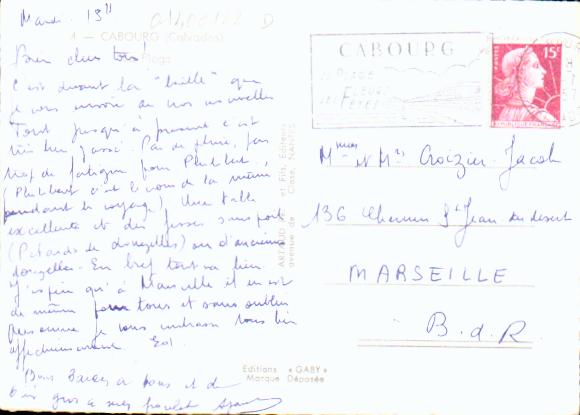 Mardi. 13H
4 - CABOURG (Calvados)
Plage
Bien chers tous!
C'est devant la "baille" que
je vous envoie de nos nouvelles
Tout jusqu'à présent c'est
très bien passé. Pas de pluie, pas
trop de fatigue pour Philibert,
(Philibert c'est le nom de la
pendant le voyage). Une table
excellente et des fesses sans poil
(Pétards de donzelles) ou d'anciennes
donzelles. En bref tout va bien.
J'espère qu'à Marseille il en est
de même pour tous et sans oublier
personne je vous embrasse tous bien
affectueusement
Bons baisers à tous et de
très gros à mes
Editions « GABY »
Marque Déposée
ARTAUD et Fils, Editeurs
avenue de Class, NANTES
CABOURG
SA PLAGE
SES FLEURS
SES FÊTES
15F
POSTES
REPUBLIQUE FRANÇAISE
Mmes et Mrs Croizier-Jacob
136 Chemin St Jean du desert
MARSEILLE
B.d.R.